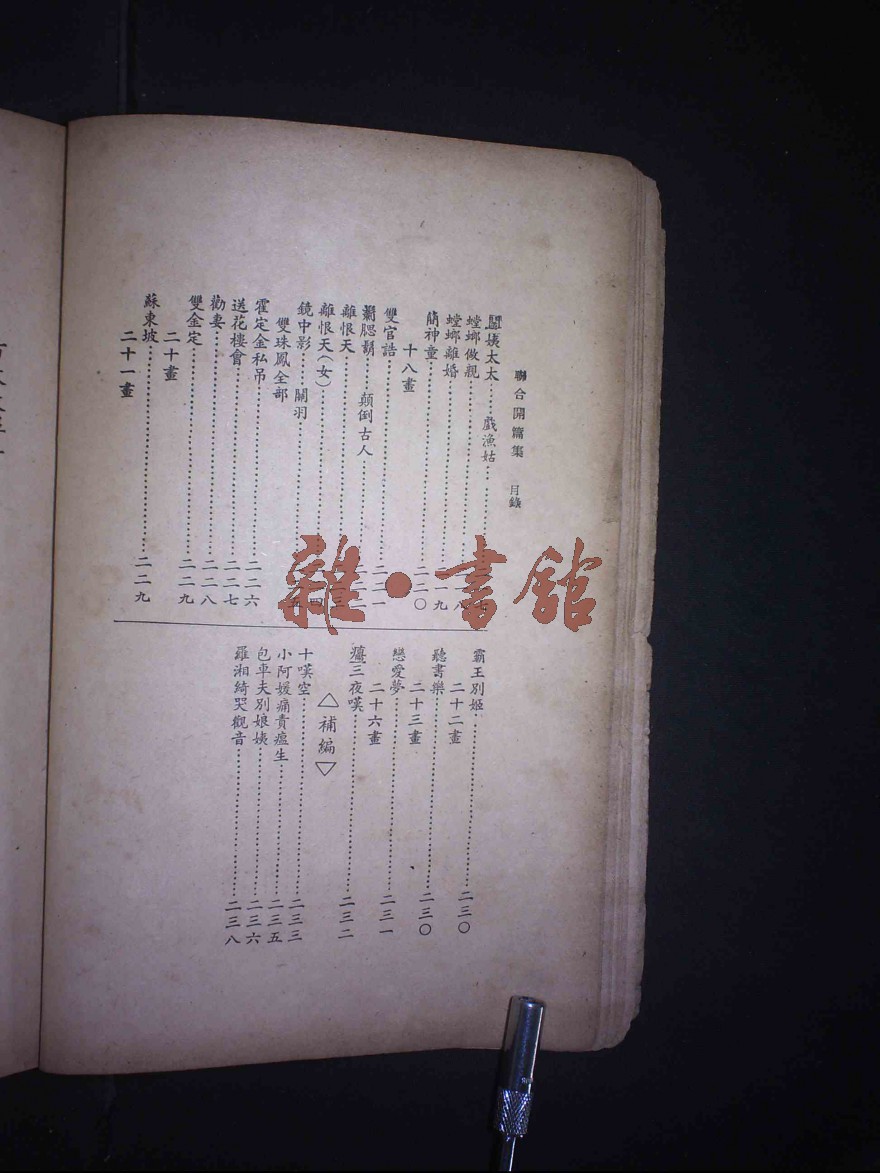 聯合開篇集 目錄
姨太太……戲漁姑……
螳螂做親……八
螳螂離婚……一九
簡神童……二二〇
十八畫
雙官誥……二二一
腮鬍……顛倒古人
離恨天……
離恨天(女)……
鏡中影……關羽……
雙珠鳳全部
霍定金私吊……二二六
送花樓會……二二七
勸妻……二二八
雙金定……二二九
二十畫
蘇東坡……二二九
二十一畫
霸王別姬……二三〇
二十二畫
聽書樂……二三〇
二十三畫
戀愛夢……二三一
二十六畫
三夜嘆……二三二
△補編▽
十嘆空……二三三
小阿媛痛責瘟生……二三五
包車夫別娘姨……二三六
羅湘綺哭觀音……二三八
雜·書館